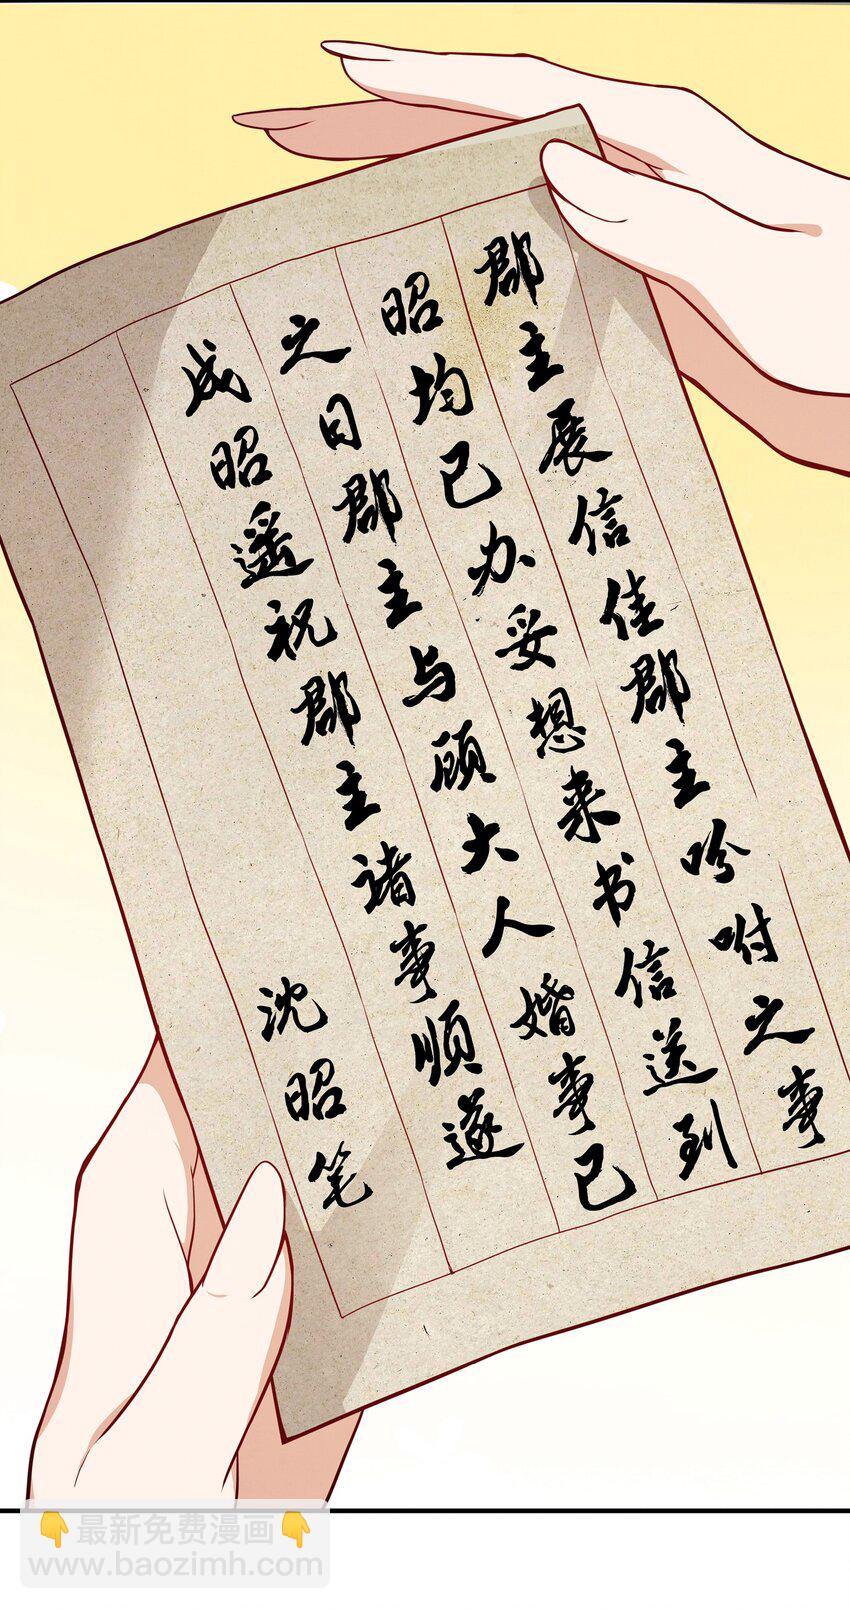 郡主展信佳郡主吩咐之事
昭均已办妥想来书信送到
之日郡主与顾大人婚事已
成昭遥祝郡主诸事顺遂
沈昭笔
👇最新免费漫画👇
www.baozimh.com